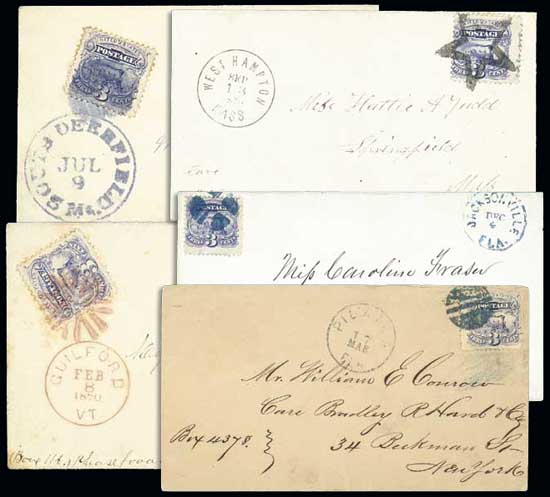 POSTAGE
3
SOUTH DEERFIELD
JUL
9
Ms.
POSTAGE
3
WEST HAMPTON
SEP
13
MASS
Miss Hattie A Judd
Springfield
Mass
POSTAGE
3
JACKSONVILLE
DEC
FLA.
Miss Caroline Fraser
GUILFORD
FEB
8
1870
VT
POSTAGE
3
17
MAR
Mr. William E Conrow
Care Bradley R Hard & Co
Box 4378.
34 Beekman St
New York